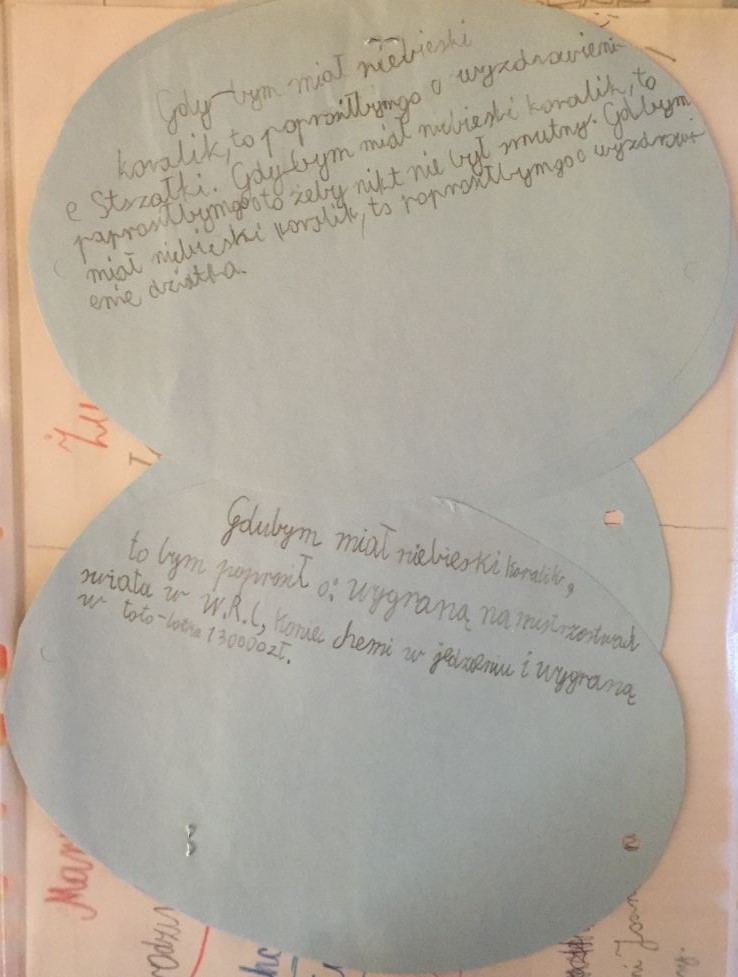 Gdy-bym miał niebieski
koralik, to poprosiłbymgo o wyzdrowieni-
e Strzałki. Gdy-bym miał niebieski koralik, to
paprosiłbymgooto żeby nikt nie był smutny. Gdybym
miał niebieski koralik, to poprosiłbymgo o wyzdrowi-
enie dziatka.
Żu
Gdubym miał niebieski koralik,
to bym poprosił o: wygraną na mistrzostwach
swiata w W.R.C, koniec chemi w jedzeniu i wygraną
w toto-lotka 130000zł.
Mar
rodzi